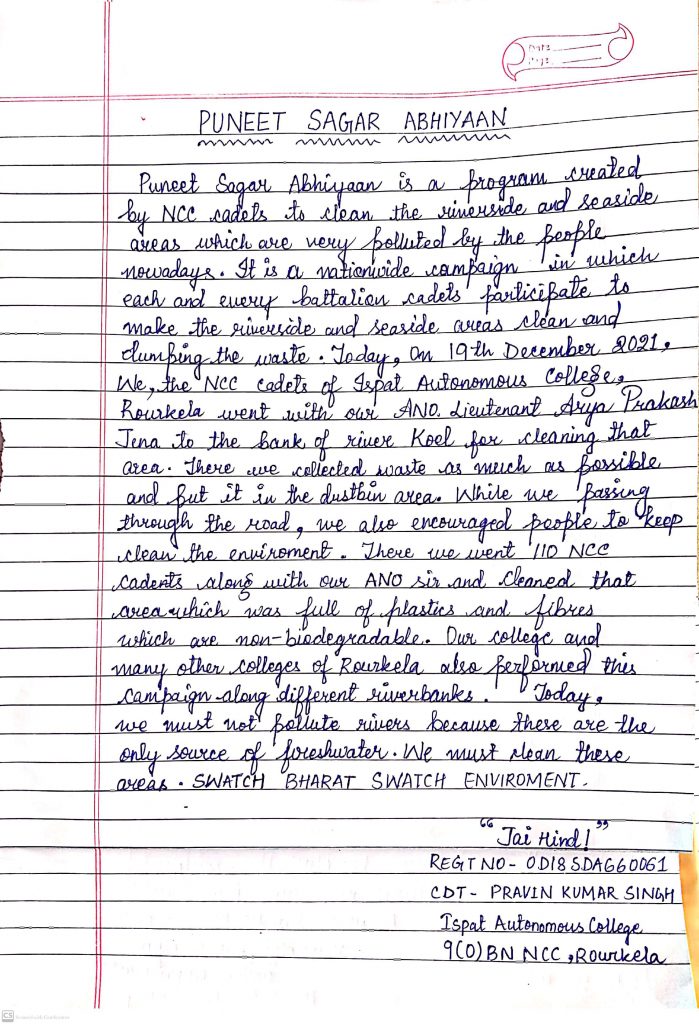 Date
Page
PUNEET SAGAR ABHIYAAN
Puneet Sagar Abhiyaan is a program created
by NCC cadets to clean the riverside and seaside
areas which are very polluted by the people
nowadays. It is a nationwide campaign in which
each and every battalion cadets participate to
make the riverside and seaside areas clean and
dumping the waste. Today, On 19th December 2021,
We, the NCC cadets of Ispat Autonomous College,
Rourkela went with our ANO. Lieutenant Arya Prakash
Jena to the bank of river Koel for cleaning that
area. There we collected waste as much as possible
and put it in the dustbin area. While we passing
through the road, we also encouraged people to keep
clean the enviroment. There we went 110 NCC
cadents along with our ANO sir and cleaned that
area which was full of plastics and fibres
which are non-biodegradable. Our college and
many other colleges of Rourkela also performed this
campaign along different riverbanks. Today,
we must not pollute rivers because these are the
only source of freshwater. We must clean these
areas. SWATCH BHARAT SWATCH ENVIROMENT.
"Jai Hind!"
REGT NO- OD18SDA660061
CDT- PRAVIN KUMAR SINGH
Ispat Autonomous College
9(O) BN NCC, Rourkela
CS Scanned with CamScanner